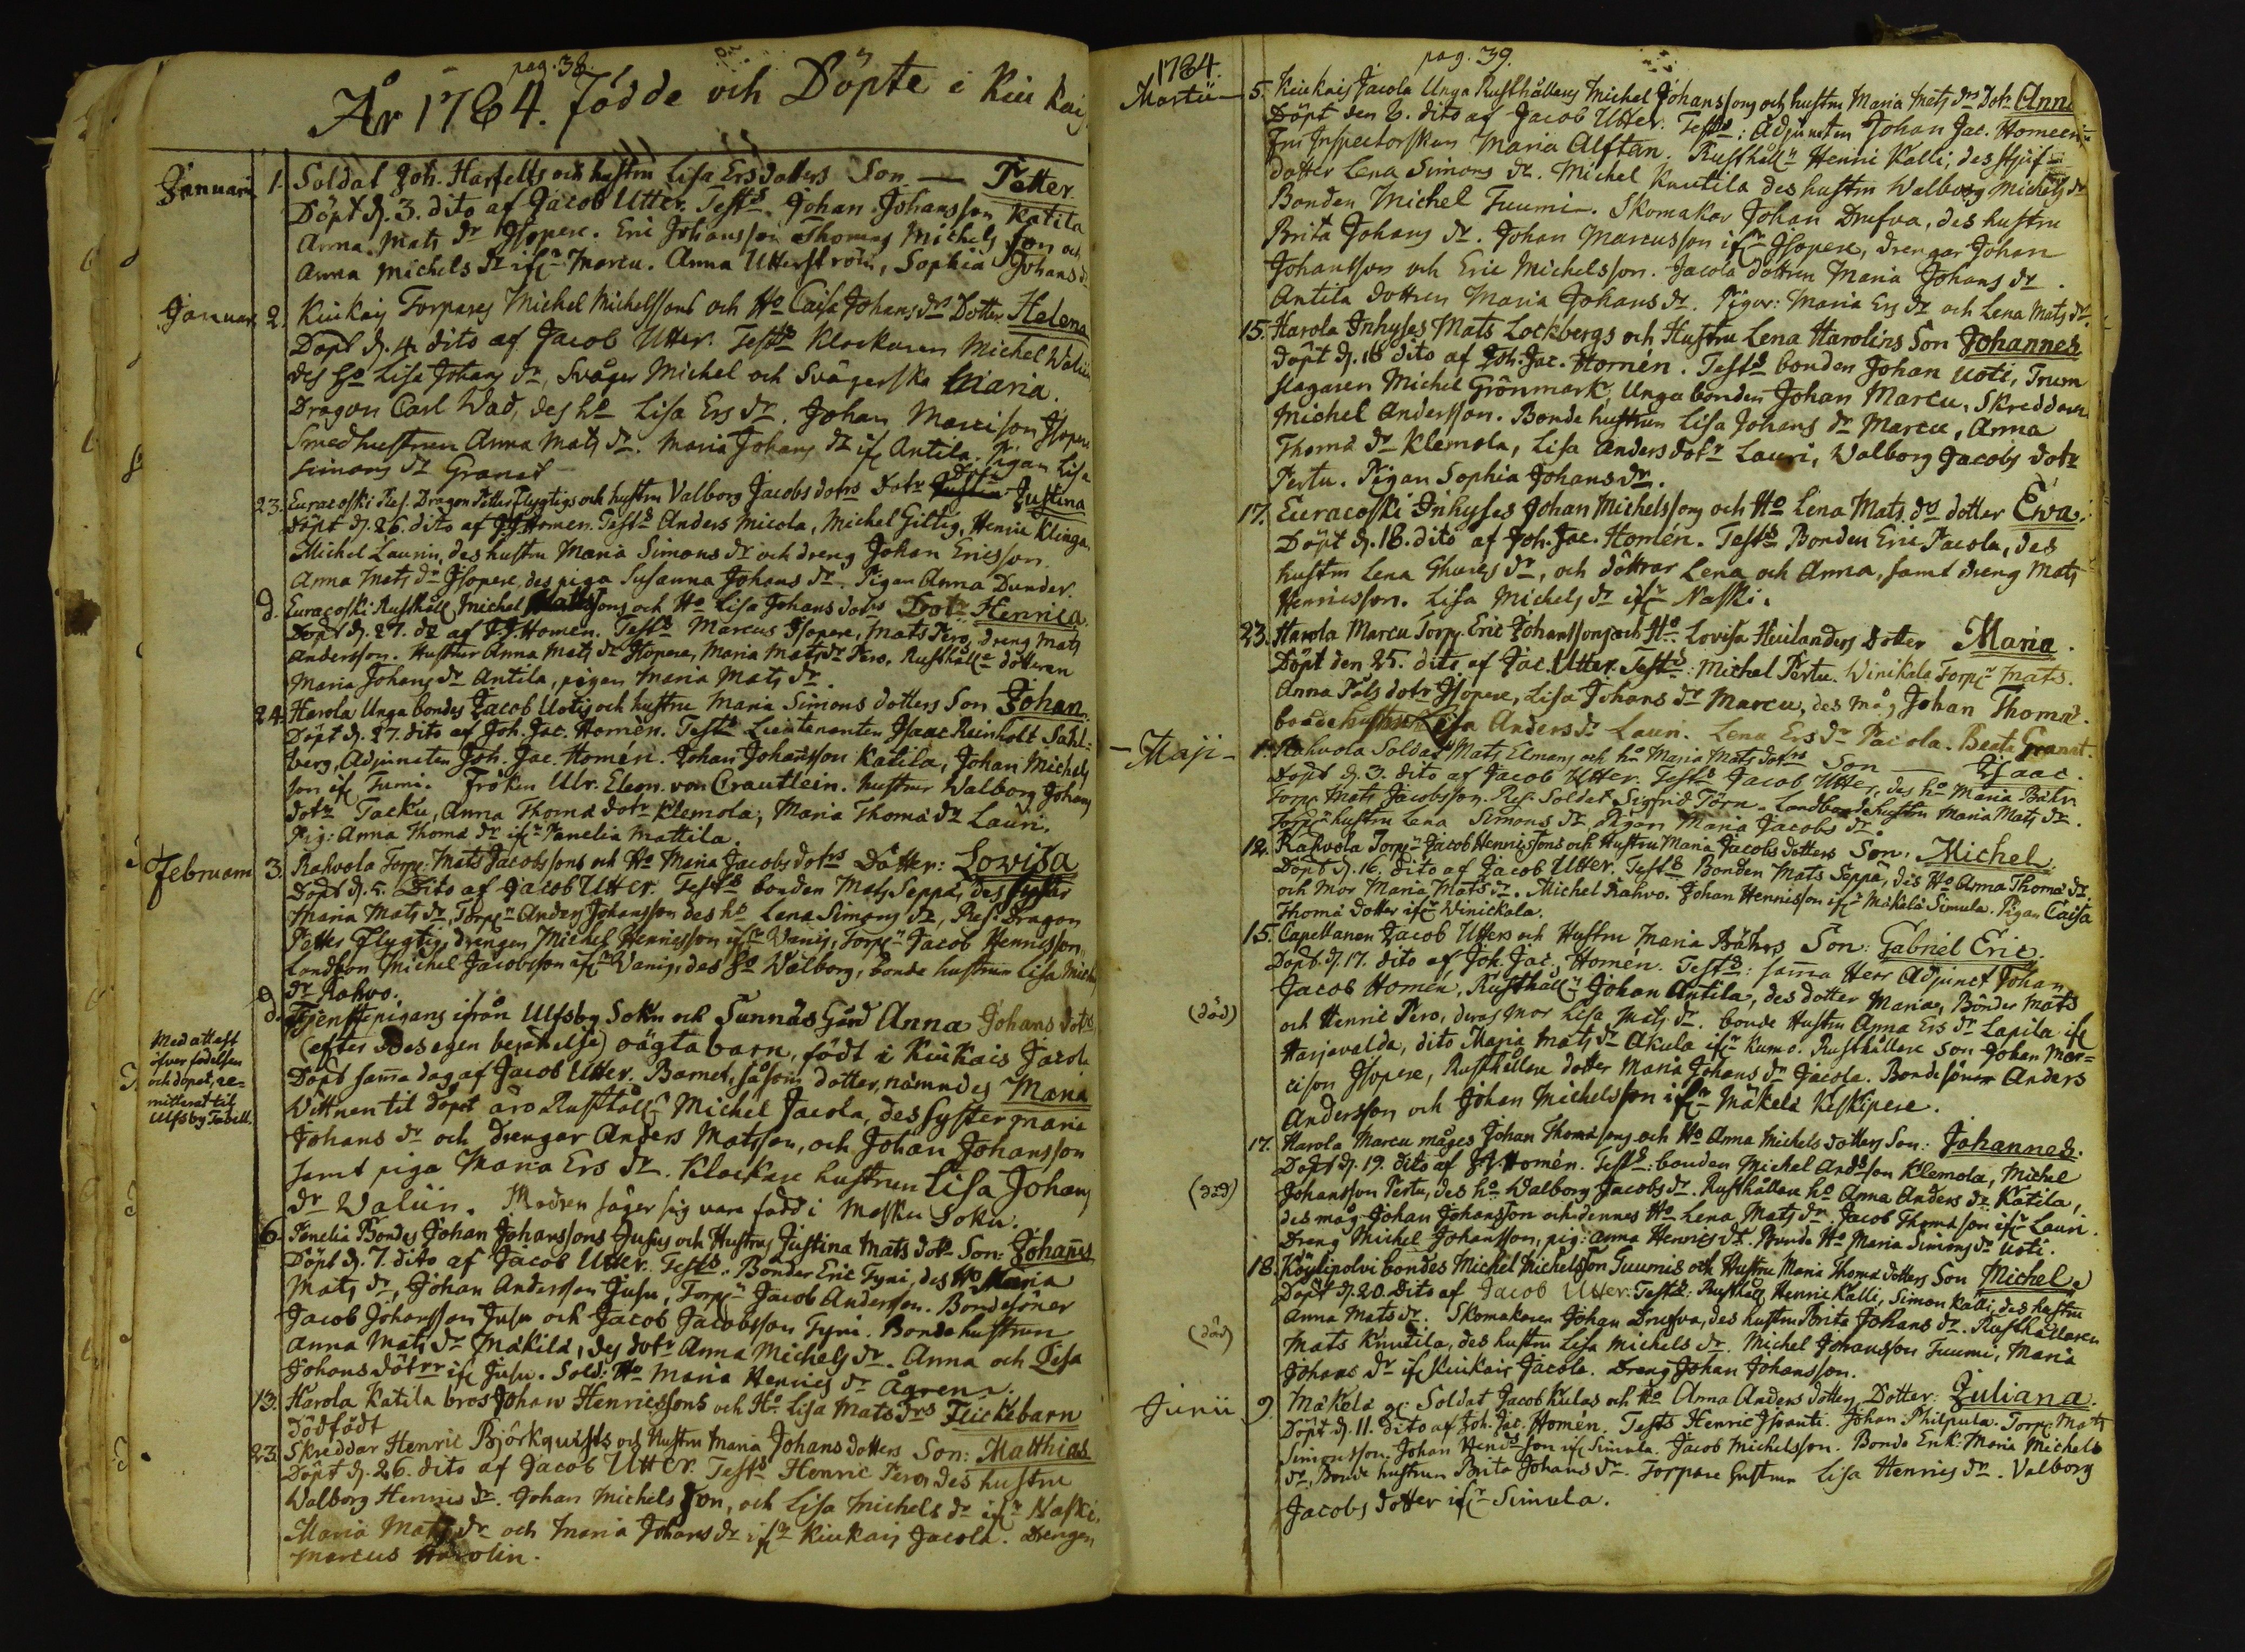 pag. 38.
År 1784. Födde och Döpte i Kiu kais
Januarii 1. Soldat Joh. Harfelts och hustru Lisa Ersdotters Son — Petter
Döpt d. 3. dito af Jacob Utter. Test:s Johan Johansson Katila
Anna Mats dr Isopere. Eric Johansson Thomas Michels son och
Anna Michels dr ifr Marcu. Anna Utterström, Sophia Johans dr
Januar. 2. Kiukais Torpares Michel Michelssons och Ho Caisa Johans drs Dotter Helena
Döpt d. 4. dito af Jacob Utter. Test:s Klockaren Michel Walin
des Ho Lisa Johans dr, Svåger Michel och Svägerska Maria.
Dragon Carl Wad, des ho Lisa Ers dr. Johan Marcison Isopere
Smedhustrun Anna Mats dr. Maria Johans dr if. Antila. Pigan Lisa
Simons dr Granat
23. Euracoski Res. Dragon Petter Flygtigs och hustru Valborg Jacobs dotrs Dotr Justina
döpt d. 26. dito af J.J. Homen. Test:s Anders Micola, Michel Giltig, Henric Klinga,
Michel Laurin, des hustru Maria Simons dr och dreng Johan Ericsson.
Anna Mats dr Isopere, des piga Susanna Johans dr. Pigan Anna Dunder.
d. Euracoski Rusthåll. Michel Mattssons och Ho Lisa Johans dotrs Dotr: Henrica
Döpt d. 27. do af J.J. Homen. Test:s Marcus Isopere, Mats Pero, dreng Mats
Andersson. Hustrur Anna Mats dr Isopere, Maria Mats dr Pero, Rusthåll:e dottren
Maria Johans dr Antila, pigan Maria Mats dr.
24. Harola Unga bondes Jacob Uotis och hustru Maria Simons dotters Son Johan
Döpt d. 27. dito af Joh. Jac. Homén. Test:s Lieutenanten Isaac Reinholt Sahl=
berg, Adjuncten Joh. Jac. Homén. Johan Johansson Katila, Johan Michels
son if. Tumi. Fröken Ulr. Eleon. von Crautlein. Hustrur Walborg Johans
dotr Tacku, Anna Thomä dotr Klemola, Maria Thomä dr Lauri.
Pig: Anna Thomä dr ifr Panelia Mattila.
Februarii 3. Rahvola Torp: Mats Jacobssons och Ho Maria Jacobs dotrs Dotter: Lovisa
Döpt d. 5. Dito af Jacob Utter. Test:s bonden Mats Seppä, des syster
Maria Mats dr, Torp:n Anders Johansson des ho Lena Simons dr, Res. Dragon
Petter Flygtig, drengen Michel Henricsson ifr Wanis, Torp:n Jacob Henricsson,
Landbon Michel Jacobsson ifr Wanis, des Ho Walborg, bonde hustrun Lisa Michels
dr Rahvo.
d. Tjenstepigans ifrån Ulfsby Sokn och Sunnäs Gård Anna Johans dotrs
(efter des egen berättelse) oägta barn, födt i Kiukais Jacola
Döpt samma dag af Jacob Utter. Barnet, såsom dotter, nämndes Maria
Wittnen til döpet äro Rusthåll:n Michel Jacola, des syster Maria
Johans dr och drengar Anders Matsson, och Johan Johansson
samt piga Maria Ers dr. Klockare hustrun Lisa Johans
dr Walin. Modren säger sig vara född i Masku Sokn.
Med attest
öfver födelsen
och döpet, re=
mitterat til
Ulfsby Tabell.
6. Penelia Bondes Johan Johanssons Jusus och Hustrus Justina Mats dotr Son: Johannes
Döpt d. 7. dito af Jacob Utter. Test:s Bonder Eric Tyni, des Ho Maria
Mats dr, Johan Andersson Jusu, Torp:n Jacob Andersson. Bondesöner
Jacob Johansson Jusu och Jacob Jacobsson Tyni. Bondehustrun
Anna Mats dr Mäkilä, des dotr Anna Michels dr. Anna och Lisa
Johans dötrr if. Jusu. Sold: Ho Maria Henrics dr Ågren.
13. Harola Katila bros Johan Henricssons och Ho Lisa Mats drs Flickebarn
Dödfödt
23. Skreddar Henric Björkquists och Hustru Maria Johans dotters Son: Matthias
Döpt d. 26. dito af Jacob Utter. Test:s Henric Pero, des hustru
Walborg Henrics dr. Johan Michels son, och Lisa Michels dr ifr Naski.
Maria Mats dr och Maria Johans dr ifr Kiukais Jacola. Drengen
Marcus Harolin.
1784. pag. 39.
Martii 5. Kiukais Jacola Unga Rusthållares Michel Johanssons och hustru Maria Mats drs Dotr Anna
Döpt den 6. dito af Jacob Utter. Test:s: Adjuncten Johan Jac. Homeen
Fru Inspectorskan Maria Alftan. Rusthåll:n Henric Kalli, des styf
dotter Lena Simons dr. Michel Knutila des hustru Walborg Michels dr
Bonden Michel Tuumi. Skomakar Johan Drufva, des hustru
Brita Johans dr. Johan Marcusson ifr Isopere, drengar Johan
Johansson och Eric Michelsson. Jacola dottren Maria Johans dr.
Antila dottren Maria Johans dr. Pigor: Maria Ers dr och Lena Mats dr.
15. Harola Inhyses Mats Lockbergs och Hustru Lena Harolins Son Johannes
döpt d. 18 dito af Joh. Jac. Homén. Test:s bonden Johan Uoti, Trum
slagaren Michel Grönmark, Unga bonden Johan Marcu, Skreddaren
Michel Andersson. Bonde hustrun Lisa Johans dr Marcu, Anna
Thomä dr Klemola, Lisa Anders dotr Lauri, Walborg Jacobs dotr
Pertu. Pigan Sophia Johans dr.
17. Euracoski Inhyses Johan Michelssons och Ho Lena Mats drs dotter Ewa.
Döpt d. 18. dito af Joh. Jac. Homén. Test:s Bonden Eric Pacola, des
hustru Lena Thures dr, och döttrar Lena och Anna, samt dreng Mats
Henricsson. Lisa Michels dr ifr Naski.
23. Harola Marcu Torp. Eric Johanssons och Ho Lovisa Heulanders Dotter Maria.
Döpt den 25. dito af Jac. Utter. Test:s: Michel Pertu. Winikala Torp:r Mats.
Anna Påls dotr Isopere, Lisa Johans dr Marcu, des måg Johan Thomä.
bondehustrun Lisa Anders dr Lauri. Lena Ers dr Pacola. Beata Granat.
Maji 1. Rahvola Soldat Mats Elmans och ho Maria Mats dotrs Son — Isaac.
Döpt d. 3. dito af Jacob Utter. Test:s Jacob Utter, des ho Maria Bähr
Torp. Mats Jacobsson. Res. Soldat Sigfrid Törn. Landbonde hustru Maria Mats dr.
Torpar hustru Lena Simons dr, pigan Maria Jacobs dr.
12. Rahvola Torp:n Jacob Henricssons och Hustru Maria Jacobs dotters Son. Michel
Döpt d. 16. dito af Jacob Utter. Test:s Bonden Mats Seppä, des Ho Anna Thomä dr.
och mor Maria Mats dr. Michel Rahvo. Johan Henricsson ifr Mäkelä Simula. Pigan Caisa
Thomä dotter ifr Winickala.
15. Capellanen Jacob Utters och Hustru Maria Bährs Son: Gabriel Eric.
Döpt d. 17. dito af Joh. Jac. Homén. Test:s: samma Herr Adjunct Johan
(död) Jacob Homén, Rusthåll:n Johan Antila, des dotter Maria, Bönder Mats
och Henric Pero, deras mor Lisa Mats dr. bonde Hustru Anna Ers dr Lapila if.
Harjavalda, dito Maria Mats dr Akula ifr Kumo. Rusthållare son Johan Mar=
cison Isopere, Rusthållare dotter Maria Johans dr Jacola. Bondesöner Anders
Andersson och Johan Michelsson ifr Mäkelä Keskipere.
17. Harola Marcu måges Johan Thomä sons och Ho Anna Michels dotters Son: Johannes.
Döpt d. 19. dito af J.J. Homén. Test:s: bonden Michel Andsson Klemola, Michel
(död) Johansson Pertu, des ho Walborg Jacobs dr. Rusthållare ho Anna Anders dr Katila,
des måg Johan Johansson och dennes Ho Lena Mats dr. Jacob Thomä son ifr Lauri.
Dreng Michel Johansson, pig: Anna Henrics dr. Bonde Ho Maria Simons dr Uoti.
18. Köylipolvi bondes Michel Michelsson Tuumis och Hustru Maria Thomä dotters Son Michel
Döpt d. 20. Dito af Jacob Utter: Test:s: Rusthåll. Henric Kalli, Simon Kalli, des hustru
(död) Anna Mats dr. Skomakaren Johan Drufva, des hustru Brita Johans dr. Rusthållaren
Mats Knutila, des hustru Lisa Michels dr. Michel Johansson Tuumi, Maria
Johans dr if. Kiukais Jacola. Dreng Johan Johansson.
Junii 9. Mäkelä Soldat Jacob Kulas och Ho Anna Anders dotters Dotter: Juliana.
Döpt d. 11. Dito af Joh. Jac. Homén. Tests Henric Isoanti. Johan Philpula. Torp. Mats
Simonsson. Johan Henricsson if. Simula. Jacob Michelsson. Bonde Enk: Maria Michels
dr, Bonde hustrun Brita Johans dr. Torpare hustrun Lisa Henrics dr. Valborg
Jacobs dotter ifr Simula.